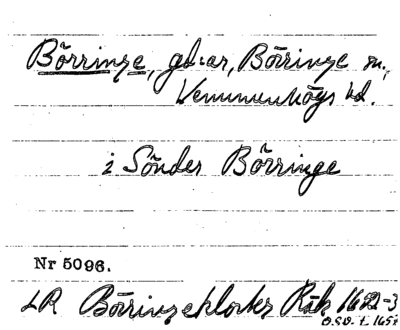 Börringe, gd:ar, Börringe sn,
Vemmenhögs hd.
i Sönder Börringe
Nr 5096.
LR Börringekloster Räk 1652-3
O.S.B. f. 165